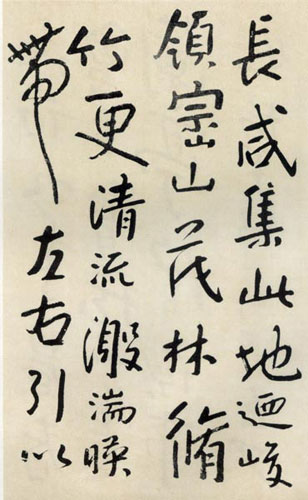 長咸集此地迺峻
領崇山茂林脩
竹更清流激湍暎
帶左右引以